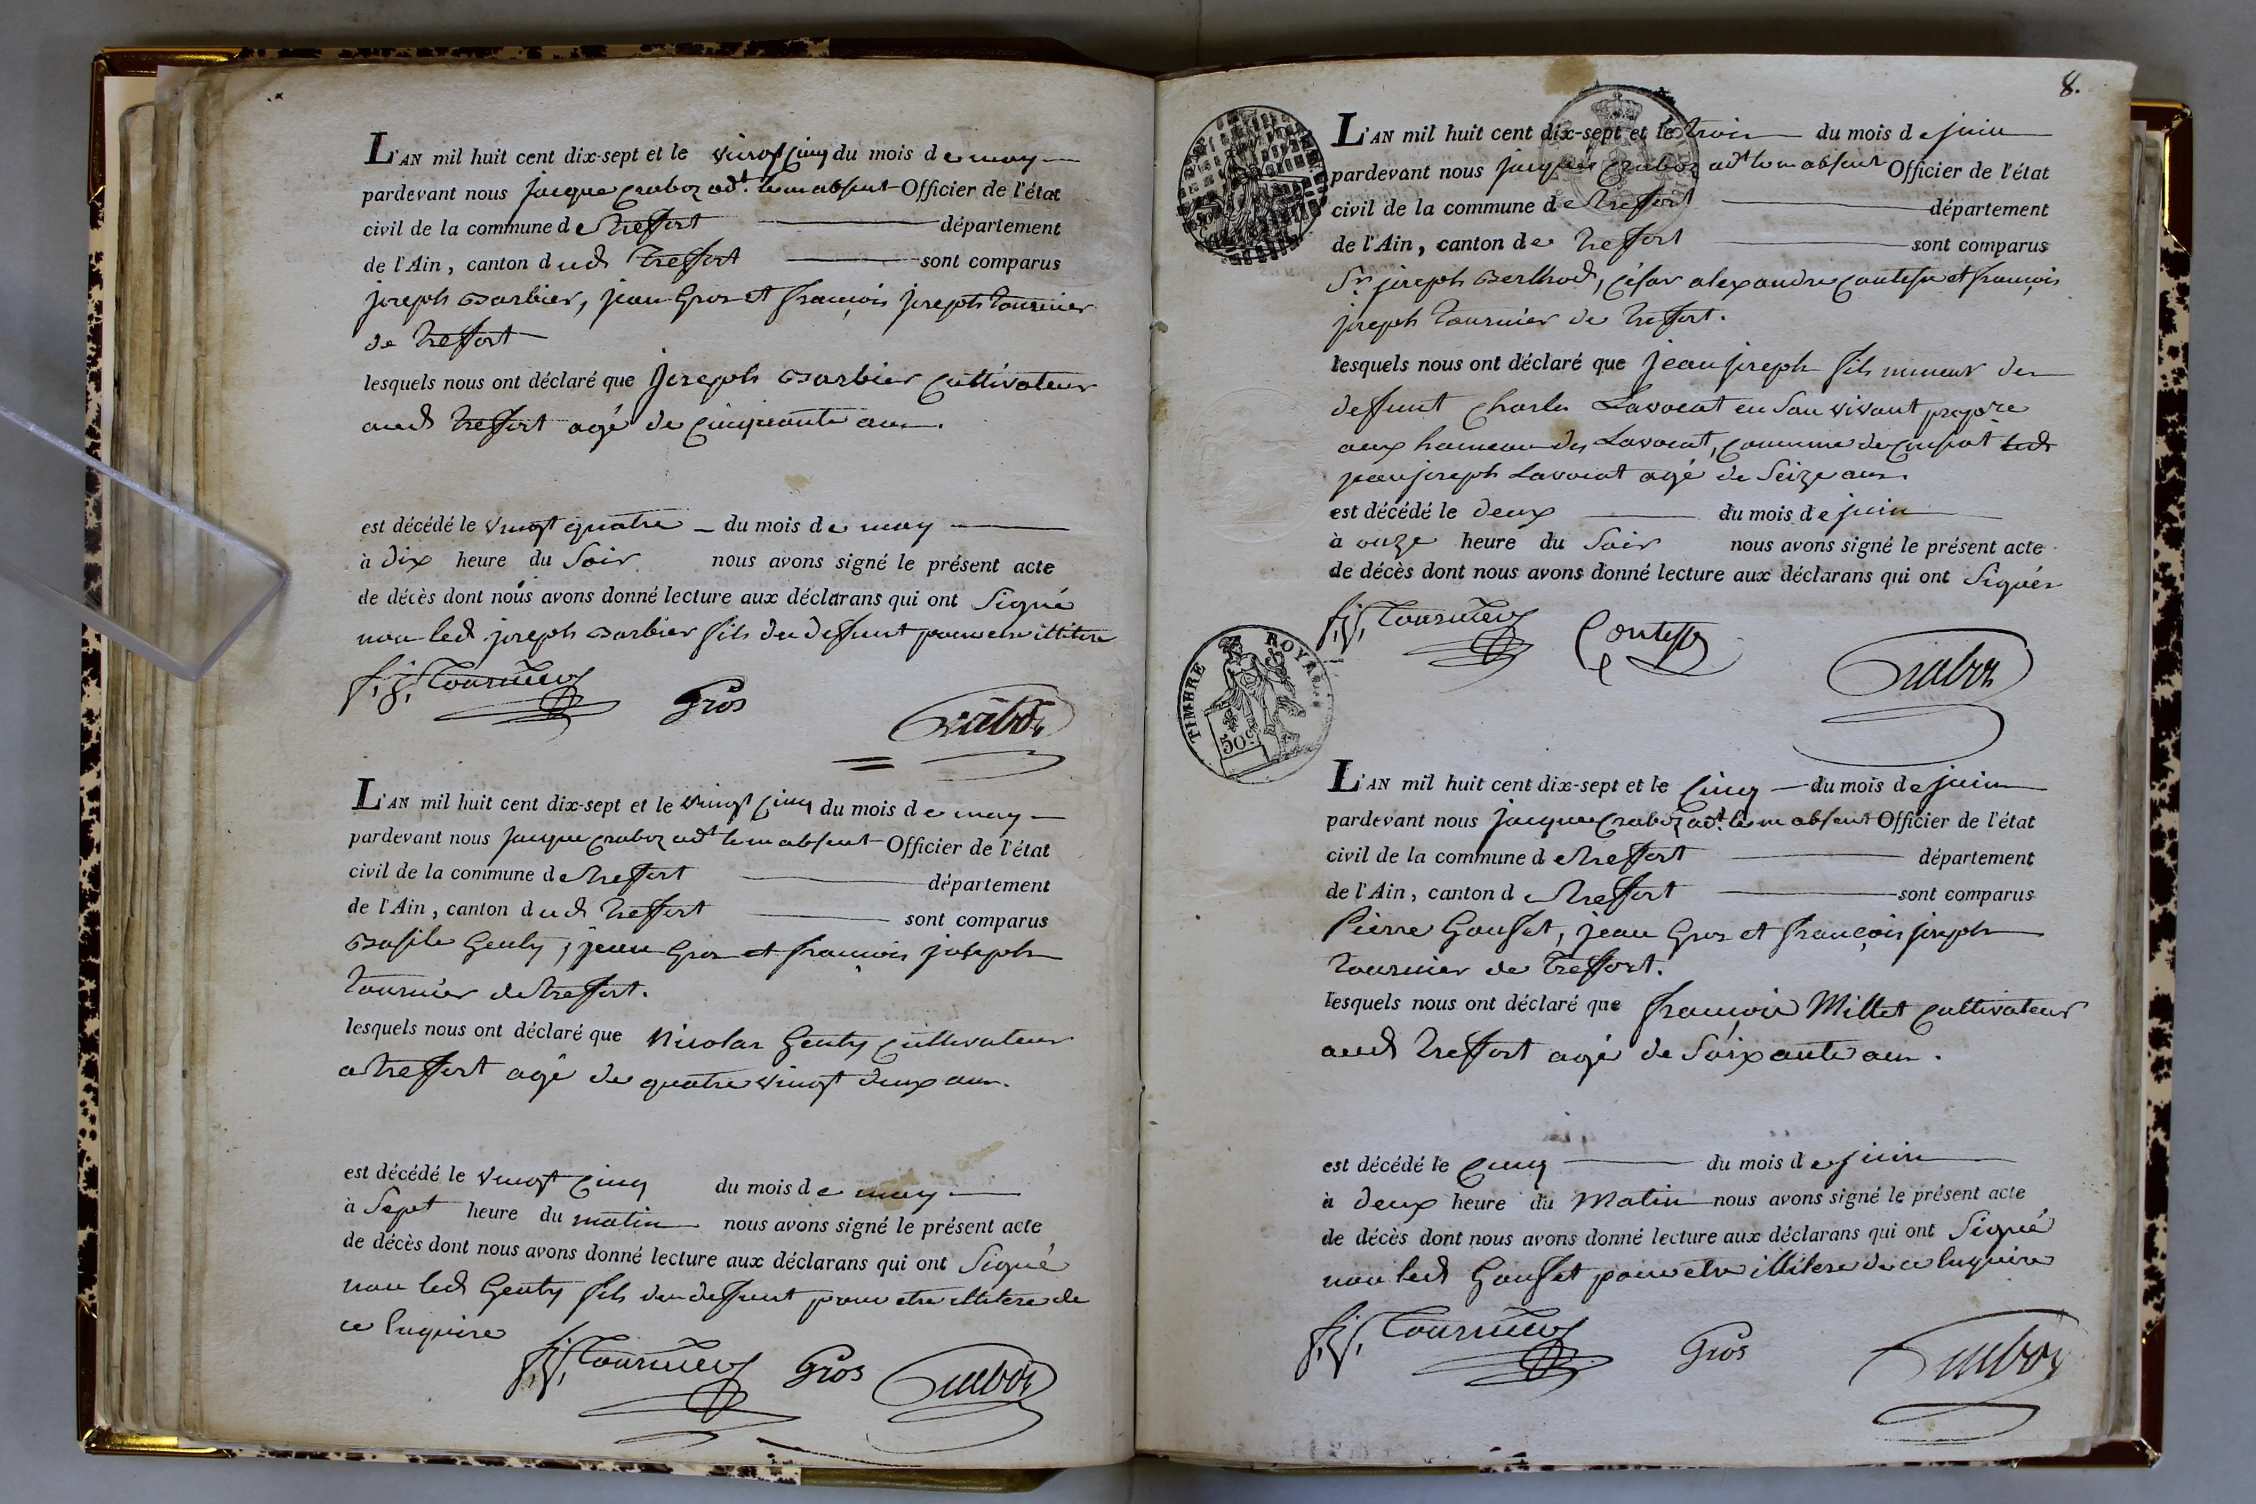 L'AN mil huit cent dix-sept et le vingt cinq du mois de may
pardevant nous jacque Craboz adt. le m absent Officier de l'état
civil de la commune de treffort département
de l'Ain, canton dudt Treffort sont comparus
joseph Barbier, jean Gros et françois joseph tournier
de treffort
lesquels nous ont déclaré que joseph Barbier cultivateur
audt treffort agé de cinquante ans.
est décédé le vingt quatre du mois de may
à dix heure du Soir nous avons signé le présent acte
de décès dont nous avons donné lecture aux déclarans qui ont Signé
non ledt joseph Barbier fils du deffunt pour etre illitere
f. j. Tournier Gros Craboz
L'AN mil huit cent dix-sept et le vingt cinq du mois de may
pardevant nous jacque Craboz adt le m absent Officier de l'état
civil de la commune de treffort département
de l'Ain, canton dudt treffort sont comparus
Basile Genty, jean Gros et françois joseph
tournier de treffort.
lesquels nous ont déclaré que Nicolas Genty cultivateur
a treffort agé de quatre vingt deux ans.
est décédé le vingt cinq du mois de may
à Sept heure du matin nous avons signé le présent acte
de décès dont nous avons donné lecture aux déclarans qui ont Signé
non ledt Genty fils du deffunt pour etre illitere de
ce Enquire
f. j. Tournier Gros Craboz
8.
L'AN mil huit cent dix-sept et le trois du mois de juin
pardevant nous jacque Craboz adt le m absent Officier de l'état
civil de la commune de treffort département
de l'Ain, canton de treffort sont comparus
Sr. joseph Berthod, César alexandre Contesse et françois
joseph tournier de treffort.
lesquels nous ont déclaré que jean joseph fils mineur de
deffunt Charles Lavocat en Son vivant propre
aux hameau des Lavocat, commune de Cuisiat ledt
jean joseph Lavocat agé de Seize ans.
est décédé le deux du mois de juin
à onze heure du Soir nous avons signé le présent acte
de décès dont nous avons donné lecture aux déclarans qui ont Signés
f. j. Tournier Contesse Craboz
TIMBRE ROYAL
50 c
L'AN mil huit cent dix-sept et le Cinq du mois de juin
pardevant nous jacque Craboz adt. le m absent Officier de l'état
civil de la commune de treffort département
de l'Ain, canton de treffort sont comparus
Pierre Gouset, jean Gros et françois joseph
tournier de treffort.
lesquels nous ont déclaré que françois Millet cultivateur
audt treffort agé de Soixante ans.
est décédé le Cinq du mois de juin
à deux heure du Matin nous avons signé le présent acte
de décès dont nous avons donné lecture aux déclarans qui ont Signé
non ledt Gouset pour etre illitere de ce Enquire
f. j. Tournier Gros Craboz